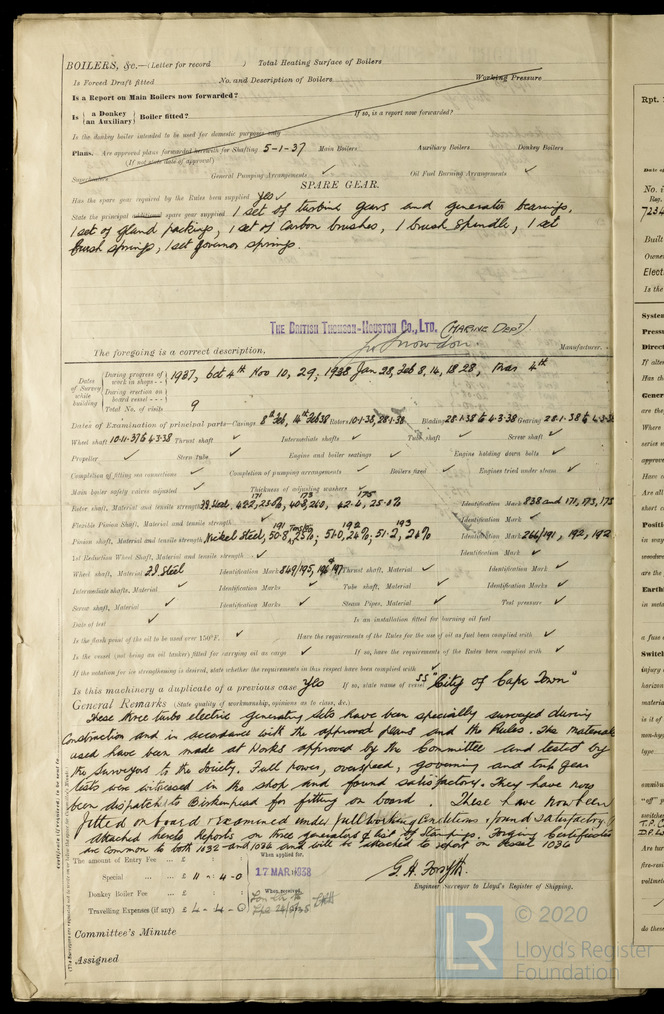 BOILERS, &c.—(Letter for record ) Total Heating Surface of Boilers
Is Forced Draft fitted No. and Description of Boilers Working Pressure
Is a Report on Main Boilers now forwarded?
Is { a Donkey / an Auxiliary } Boiler fitted? If so, is a report now forwarded?
Is the donkey boiler intended to be used for domestic purposes only
Plans. Are approved plans forwarded herewith for Shafting 5-1-37 Main Boilers Auxiliary Boilers Donkey Boilers
(If not state date of approval)
Superheaters General Pumping Arrangements ✓ Oil Fuel Burning Arrangements ✓
SPARE GEAR.
Has the spare gear required by the Rules been supplied Yes ✓
State the principal additional spare gear supplied 1 set of turbine gears and generator bearings,
1 set of gland packing, 1 set of Carbon brushes, 1 brush spindle, 1 set
brush springs, 1 set governor springs.
THE BRITISH THOMSON-HOUSTON CO., LTD. (MARINE DEPT)
The foregoing is a correct description, Manufacturer.
Dates of Survey while building
During progress of work in shops - - 1937, Oct 4th Nov 10, 29; 1938 Jan 28, Feb 8, 14, 18 28, Mar 4th
During erection on board vessel - - -
Total No. of visits 9
Dates of Examination of principal parts—Casings 8th Feb, 14th Feb 38 Rotors 10.1.38, 28.1.38 Blading 28.1.38 to 4.3.38 Gearing 28.1.38 to 4.3.38
Wheel shaft 10.11.37 to 4.3.38 Thrust shaft ✓ Intermediate shafts ✓ Tube shaft ✓ Screw shaft ✓
Propeller ✓ Stern tube ✓ Engine and boiler seatings ✓ Engine holding down bolts ✓
Completion of fitting sea connections ✓ Completion of pumping arrangements ✓ Boilers fixed ✓ Engines tried under steam ✓
Main boiler safety valves adjusted ✓ Thickness of adjusting washers ✓
171 173 175
Rotor shaft, Material and tensile strength Identification Mark 838 and 171, 173, 175
Flexible Pinion Shaft, Material and tensile strength ✓ Identification Mark ✓
191 192 193
Pinion shaft, Material and tensile strength Nickel Steel, 50.8, 25%; 51.0, 24%; 51.2, 24% Identification Mark 266/191, 192, 192
1st Reduction Wheel Shaft, Material and tensile strength ✓ Identification Mark ✓
Wheel shaft, Material Steel Identification Mark 849/195, 196 & 197 Thrust shaft, Material ✓ Identification Mark ✓
Intermediate shafts, Material ✓ Identification Marks ✓ Tube shaft, Material ✓ Identification Marks ✓
Screw shaft, Material ✓ Identification Marks ✓ Steam Pipes, Material ✓ Test pressure ✓
Date of test ✓ Is an installation fitted for burning oil fuel
Is the flash point of the oil to be used over 150°F. ✓ Have the requirements of the Rules for the use of oil as fuel been complied with ✓
Is the vessel (not being an oil tanker) fitted for carrying oil as cargo ✓ If so, have the requirements of the Rules been complied with ✓
If the notation for ice strengthening is desired, state whether the requirements in this respect have been complied with ✓
Is this machinery a duplicate of a previous case Yes If so, state name of vessel SS "City of Cape Town"
General Remarks (State quality of workmanship, opinions as to class, &c.)
These three turbo electric generating sets have been specially surveyed during
Construction and in accordance with the approved plans and the Rules. The materials
used have been made at Works approved by the Committee and tested by
the Surveyors to the Society. Full power, overspeed, governing and trip gear
tests were witnessed in the shop and found satisfactory. They have now
been dispatched to Birkenhead for fitting on board. These have now been
fitted on board & examined under full working Conditions & found satisfactory.
Attached hereto Reports on three generators & list of Stampings. Forging Certificates
are common to both 1032 and 1036 and will be attached to report on Vessel 1036
The amount of Entry Fee ... £ : : When applied for,
Special ... ... £ 11 - 4 - 0 17 MAR 1938
Donkey Boiler Fee ... £ : : When received,
Travelling Expenses (if any) £ 4 - 4 - 0
G. H. Forsyth.
Engineer Surveyor to Lloyd's Register of Shipping.
Committee's Minute
Assigned
© 2020
LR Lloyd's Register
Foundation
Rpt.